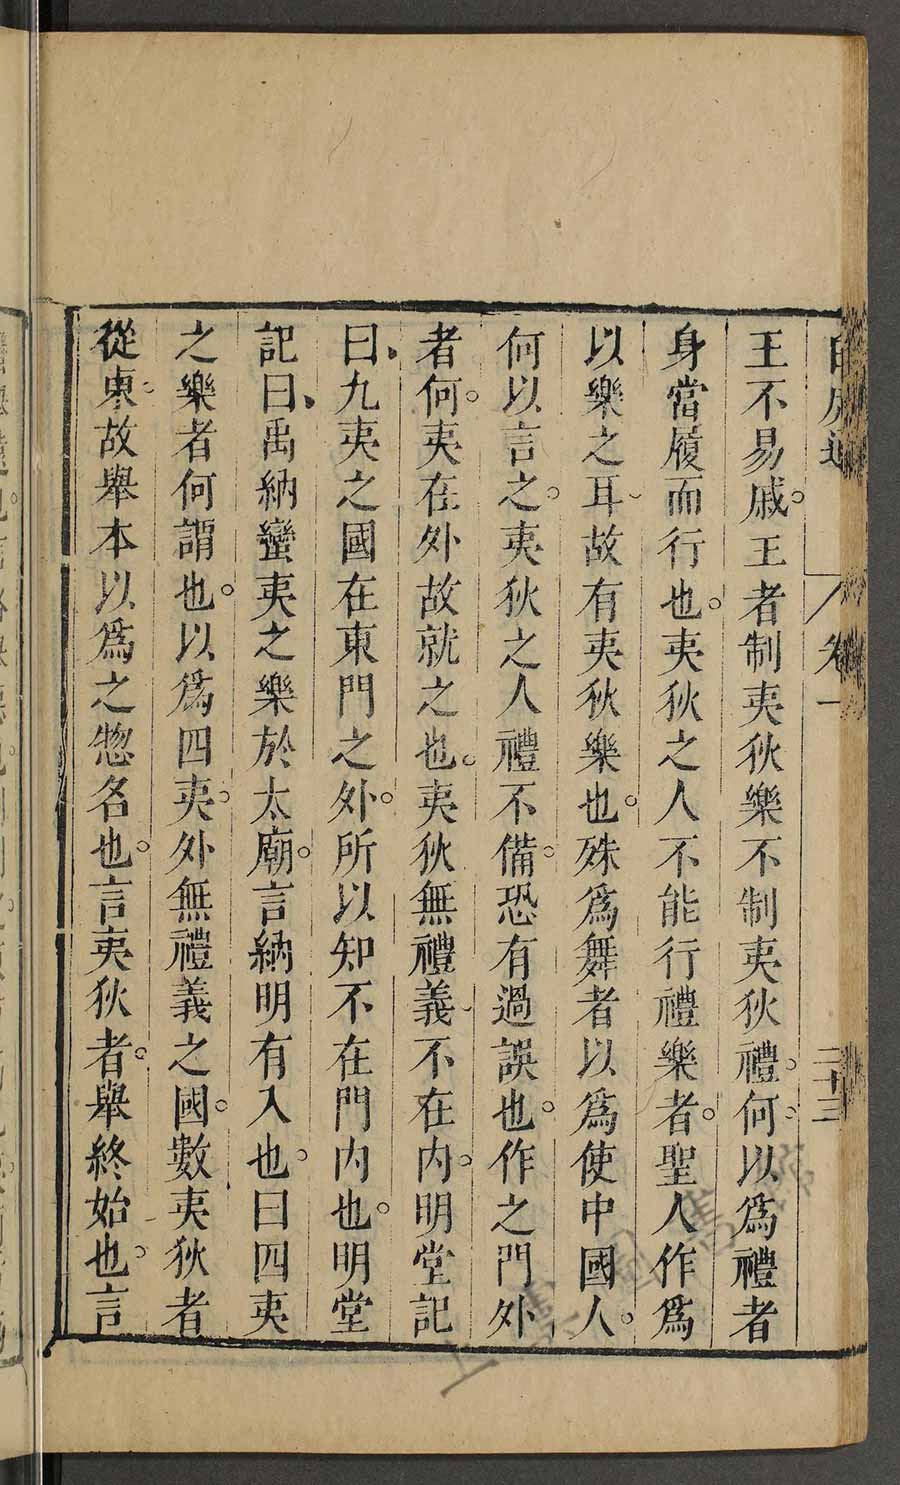 王不易戚。王者制夷狄樂不制夷狄禮。何。以爲禮者
身當履而行也。夷狄之人不能行禮樂者。聖人作爲
以樂之耳、故有夷狄樂也。殊爲舞者以爲使中國人。
何以言之。夷狄之人禮不備。恐有過誤也。作之門外
者何。夷在外故就之也。夷狄無禮義、不在内。明堂記
曰、九夷之國在東門之外。所以知不在門内也。明堂
記曰、禹納蠻夷之樂於太廟。言納明有入也。曰四夷
之樂者何謂也。以爲四夷。外無禮義之國。數夷狄者
從東。故舉本以爲之惣名也。言夷狄者。舉終始也。言
卷一
二十三